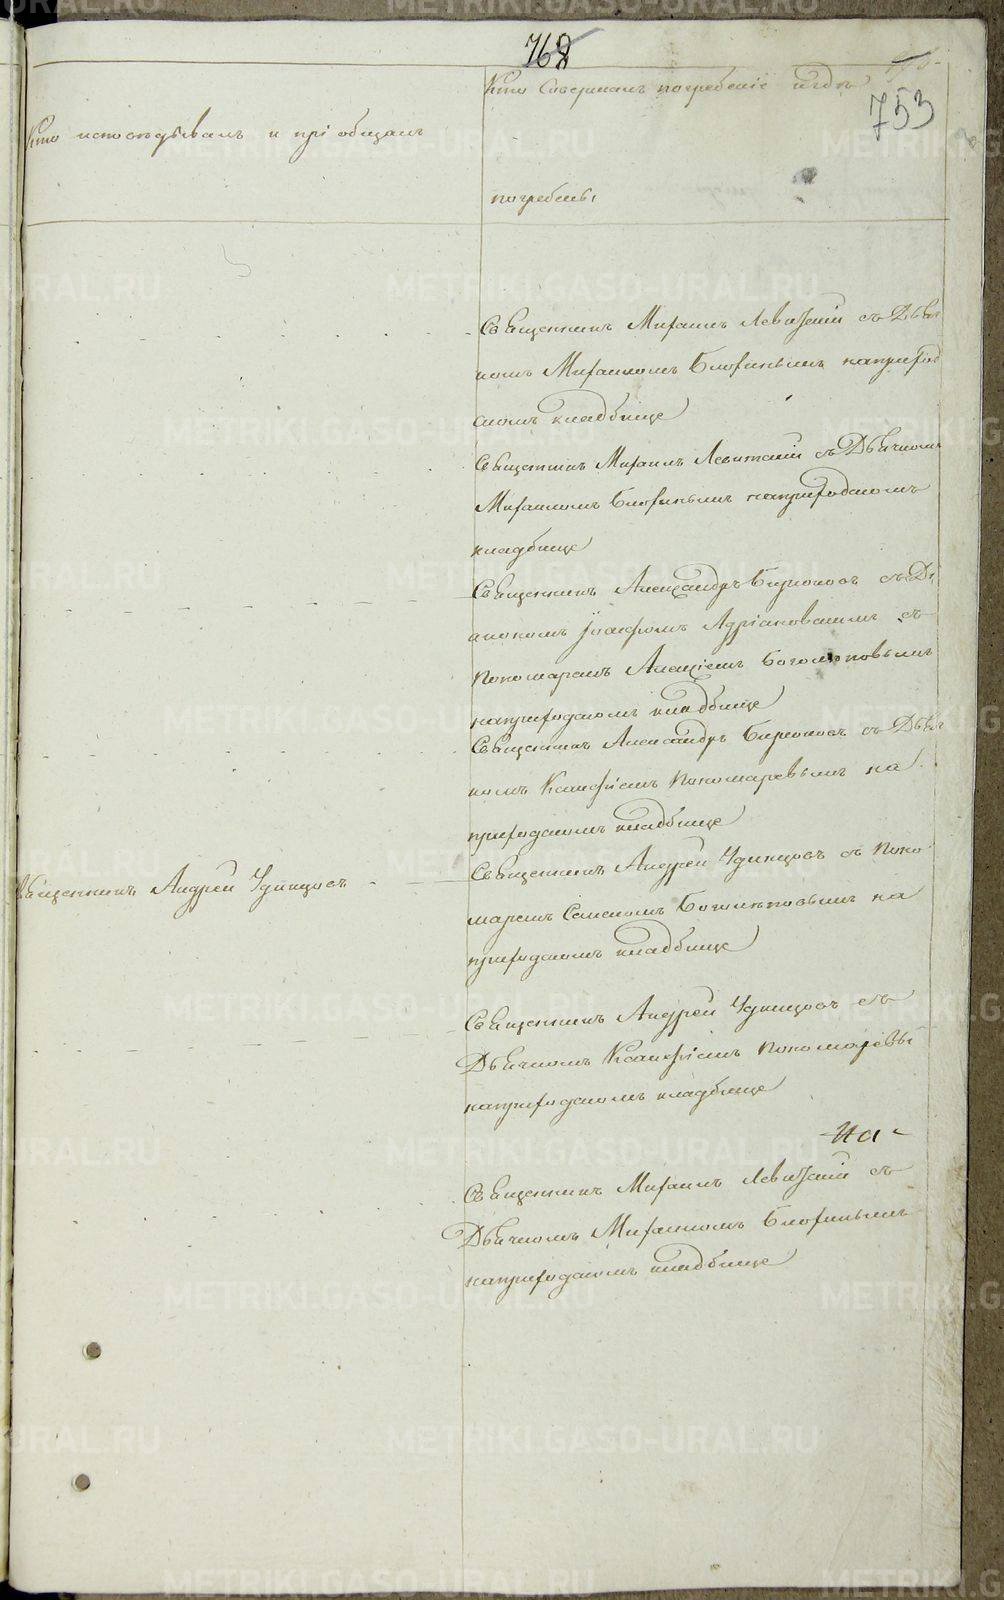 768
753
Кто исповѣдывалъ и пріобщалъ
Кто Совершалъ погребеніе и гдѣ
погребены
Священникъ Михаилъ Левитскій съ Дьяч
комъ Михаиломъ наприход
скомъ кладбище
Священникъ Михаилъ Левитскій съ Дьячкомъ
Михаиломъ наприходскомъ
кладбище
Священникъ Александръ Бирюковъ съ Ді
акономъ Адріановскимъ съ
Пономаремъ Алексіемъ Боголѣповымъ
наприходскомъ кладбище
Священникъ Александръ Бирюковъ съ Дьяч
комъ Ксанфіемъ Пономаревымъ на
приходскомъ кладбище
Священникъ Андрей Удинцовъ
Священникъ Андрей Удинцовъ съ Поно
маремъ Семеномъ Боголѣповымъ на
приходскомъ кладбище
Священникъ Андрей Удинцовъ съ
Дьячкомъ Ксанфіемъ Пономаревы
наприходскомъ кладбище
На
Священникъ Михаилъ Левитскій съ
Дьячкомъ Михаиломъ
наприходскомъ кладбище
METRIKI.GASO-URAL.RU